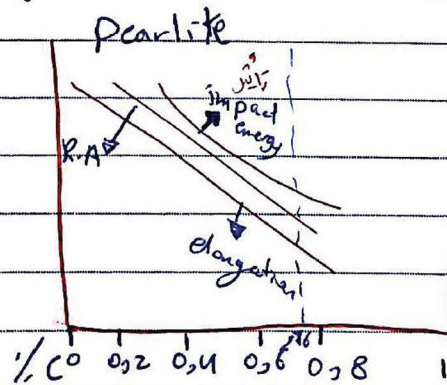 Pearlite
impact
energy
R.A
elongation
% C 0 0,2 0,4 0,6 0,8